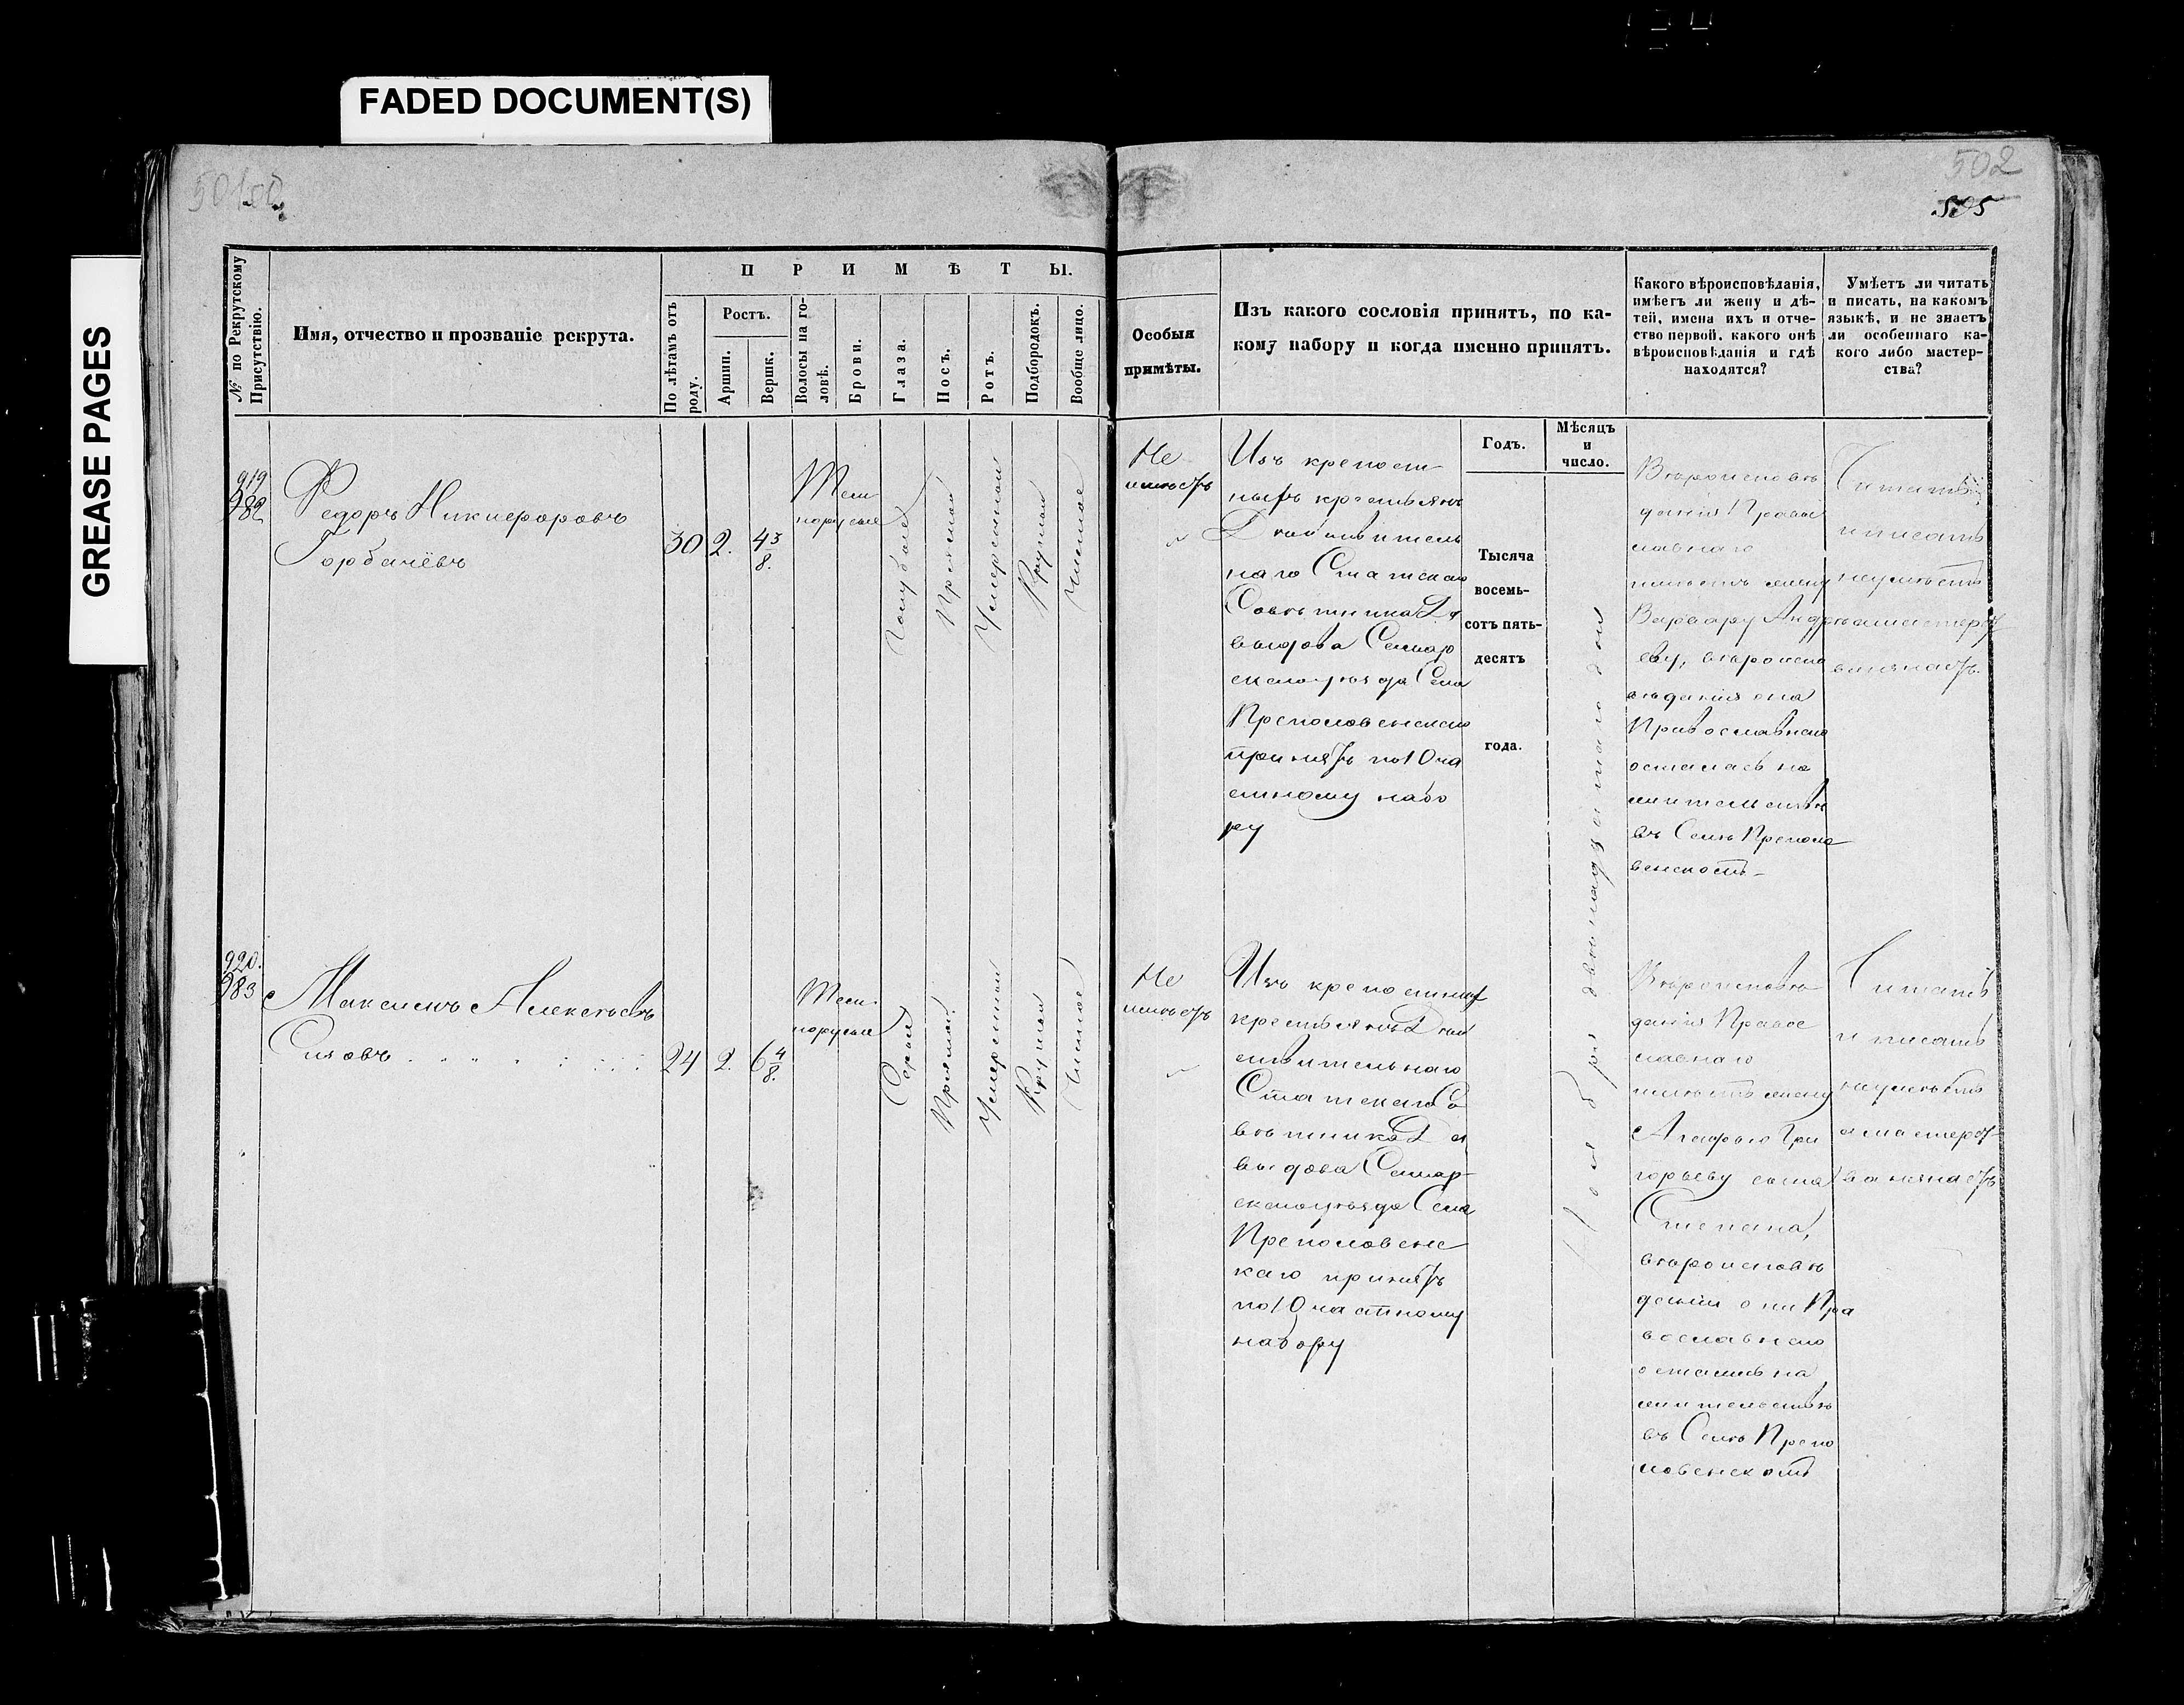 FADED DOCUMENT(S)
GREASE PAGES
502
505
№ по Рекрутскому Присутствію.
Имя, отчество и прозваніе рекрута.
ПРИМѢТЫ.
По лѣтамъ отъ роду.
Ростъ.
Аршин.
Вершк.
Волосы на го-
ловѣ.
Брови.
Глаза.
Носъ.
Ротъ.
Подбородокъ.
Вообще лицо.
Особыя
примѣты.
Изъ какого сословія принятъ, по ка-
кому набору и когда именно принятъ.
Какого вѣроисповѣданія,
имѣетъ ли жену и дѣ-
тей, имена ихъ и отче-
ство первой, какого онѣ
вѣроисповѣданія и гдѣ
находятся?
Умѣетъ ли читать
и писать, на какомъ
языкѣ, и не знаетъ
ли особеннаго ка-
кого либо мастер-
ства?
Годъ.
Мѣсяцъ
и
число.
919
982
Федоръ Никифоровъ
Горбачёвъ
30
2.
4 3/8.
Темн
норусые
Голубые
Прямой
Умеренный
Круглый
Чистое
Не
имѣетъ
Изъ крепост
ныхъ крестьянъ
Действитель
наго Статскаго
Советника Да
выдова Самар
скаго уѣзда Села
Преполовенскаго
принятъ по 10 ча
стному набо
ру
Тысяча
восемь-
сотъ пять-
десятъ
года.
Ноября двенадцатаго дня
Вѣроисповѣ
данія Правос
лавнаго
имѣетъ жену
Варвару Андре
еву, вѣроиспо
вѣданія она
Православнаго
осталась на
жительствѣ
въ Селѣ Преполо
венскомъ
Читать
и писать
неумѣетъ
а мастерст
ва незнаетъ.
920.
983
Максимъ Алексѣевъ
Сизовъ
24
2.
6 4/8.
Темн
норусые
Серые
Прямой
Умеренный
Круглый
Чистое
Не
имѣетъ
Изъ крепостныхъ
крестьянъ Дей
ствительнаго
Статскаго Со
вѣтника Да
выдова Самар
скаго уѣзда Села
Преполовенс
каго принятъ
по 10 частному
набору
Вѣроисповѣ
данія Правос
лавнаго
имѣетъ жену
Агафью Гри
горьеву сына
Степана,
вѣроисповѣ
данія они Пра
вославнаго
остались на
жительствѣ
въ Селѣ Препо
ловенскомъ
Читать
и писать
неумѣетъ
а мастерст
ва незнаетъ